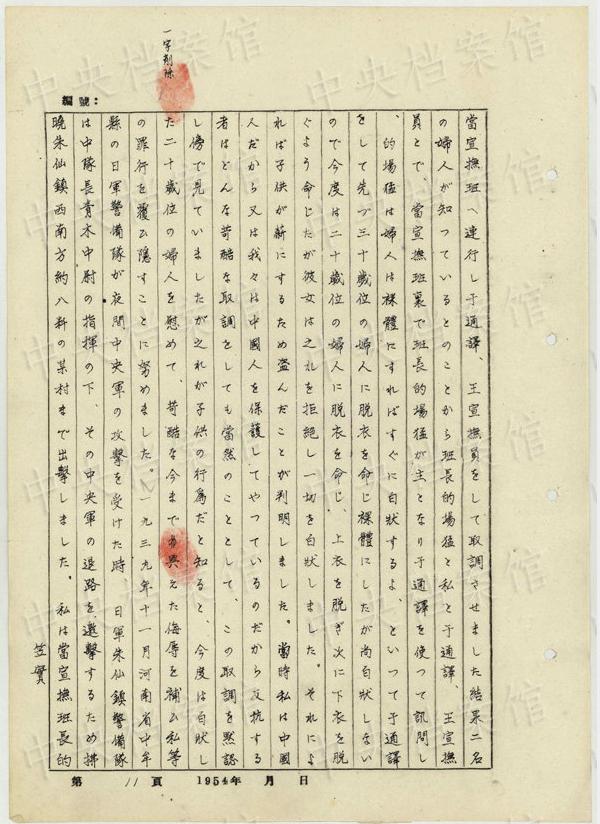 一字削除
編號：
當宣撫班へ連行し于通譯、王宣撫員をして取調させました結果二名
の婦人が知つているとのことから班長的場猛と私と于通譯、王宣撫
員とで、當宣撫班裏で班長的場猛が主となり于通譯を使つて訊問し
、的場猛は婦人は裸體にすればすぐに白状するよ、といつて于通譯
をして先づ三十歲位の婦人に脱衣を命じ裸體にしたが尚白状しない
ので今度は二十歲位の婦人に脱衣を命じ、上衣を脱ぎ次に下衣を脱
ぐよう命じたが彼女は之れを拒絶し一切を白状しました。それによ
れば子供が薪にするため盗んだことが判明しました。當時私は中國
人だから又は我々は中國人を保護してやつているのだから反抗する
者はどんな苛酷な取調をしても當然のこととして、この取調を黙認
し傍で見ていましたが之れが子供の行爲だと知ると、今度は白状し
た二十歲位の婦人を慰めて、苛酷な今まで与えた侮辱を補ひ私等
の罪行を覆ひ隠すことに努めました。一九三九年十一月河南省中牟
縣の日軍警備隊が夜間中央軍の攻擊を受けた時、日軍朱仙鎮警備隊
は中隊長青木中尉の指揮の下、その中央軍の退路を邀擊するため拂
曉朱仙鎮西南方約八粁の某村まで出擊しました。私は當宣撫班長的
笠實
第 11 頁 1954年 月 日
中央档案馆